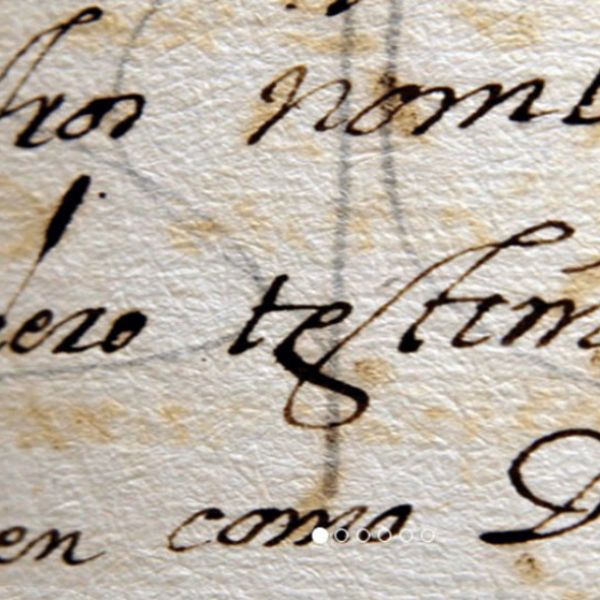 hos nomb
hero testim
en como D